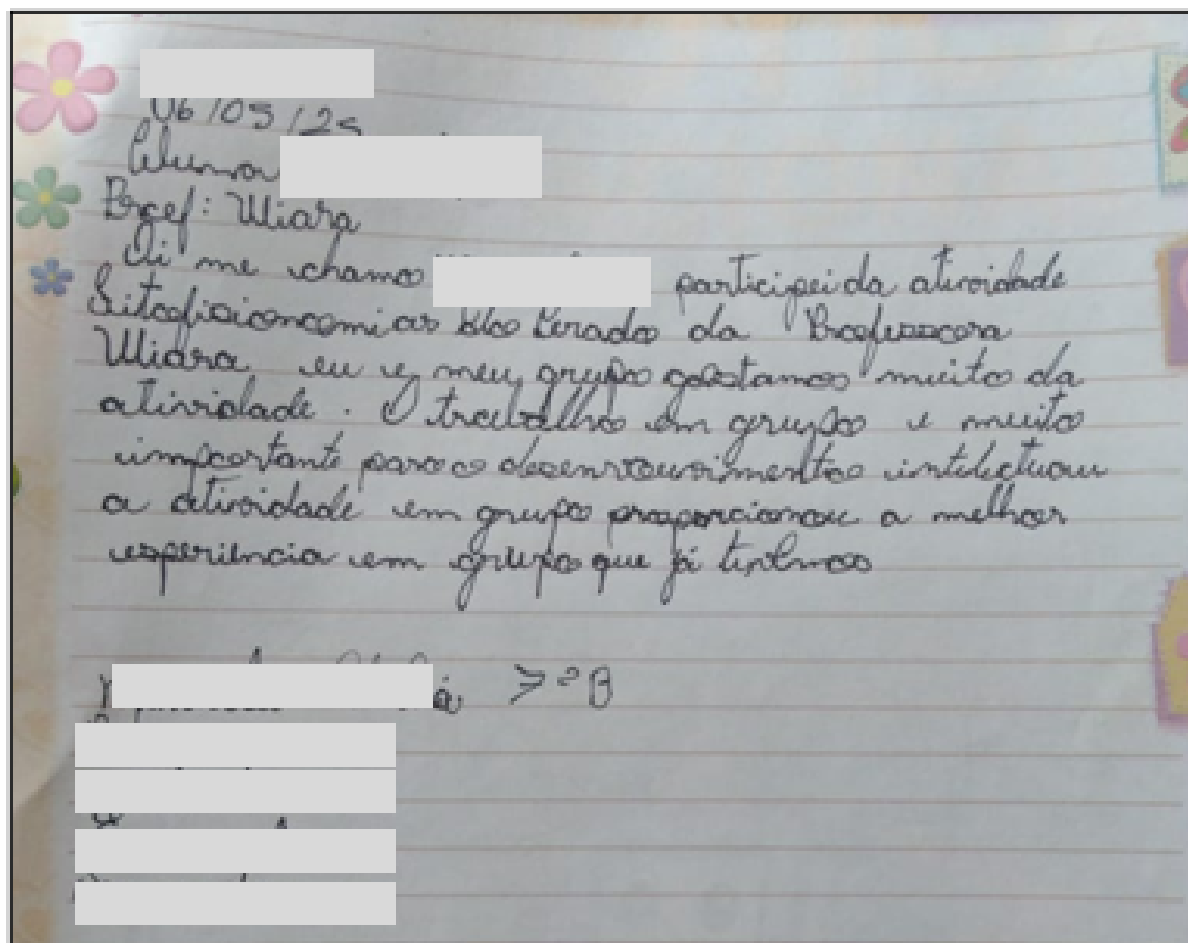 06/05/25
Aluna
Prof: Uiara
Oi me chamo participei da atividade
da Professora
Uiara eu e meu grupo gostamos muito da
atividade. O trabalho em grupo e muito
importante para o desenvouvimento intelectuau
a atividade em grupo proporcionou a melhor
experiencia em grupo que já tivemos
7ºB